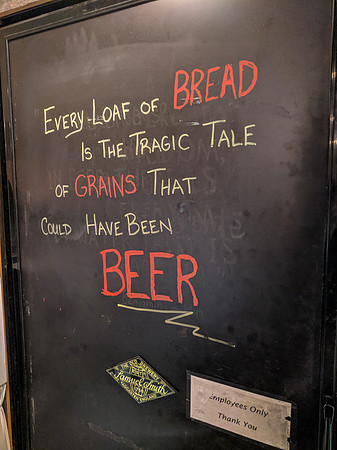 EVERY LOAF OF BREAD
IS THE TRAGIC TALE
OF GRAINS THAT
COULD HAVE BEEN
BEER
THE OLD BREWERY
Samuel Smith
Employees Only
Thank You